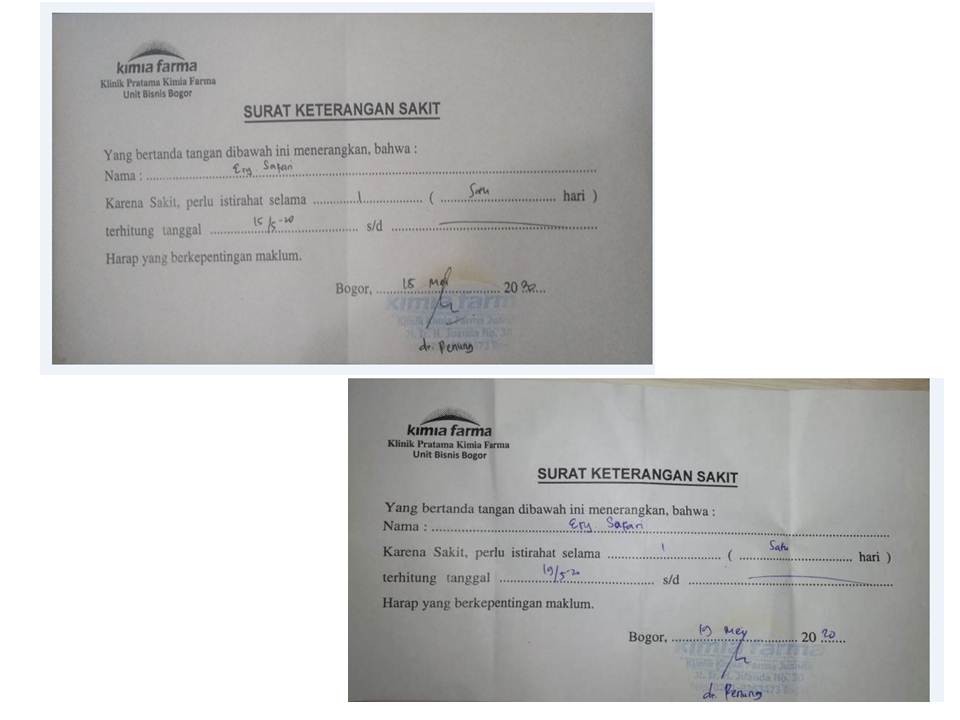 kimia farma
Klinik Pratama Kimia Farma
Unit Bisnis Bogor
SURAT KETERANGAN SAKIT
Yang bertanda tangan dibawah ini menerangkan, bahwa :
Nama : Ery Safari
Karena Sakit, perlu istirahat selama 1 ( Satu hari )
terhitung tanggal 15/5-20 s/d
Harap yang berkepentingan maklum.
Bogor, 15 Mey 2020
kimia farma
dr. Penung
kimia farma
Klinik Pratama Kimia Farma
Unit Bisnis Bogor
SURAT KETERANGAN SAKIT
Yang bertanda tangan dibawah ini menerangkan, bahwa :
Nama : Ery Safari
Karena Sakit, perlu istirahat selama 1 ( Satu hari )
terhitung tanggal 19/5-20 s/d
Harap yang berkepentingan maklum.
Bogor, 19 Mey 2020
kimia farma
dr. Penung